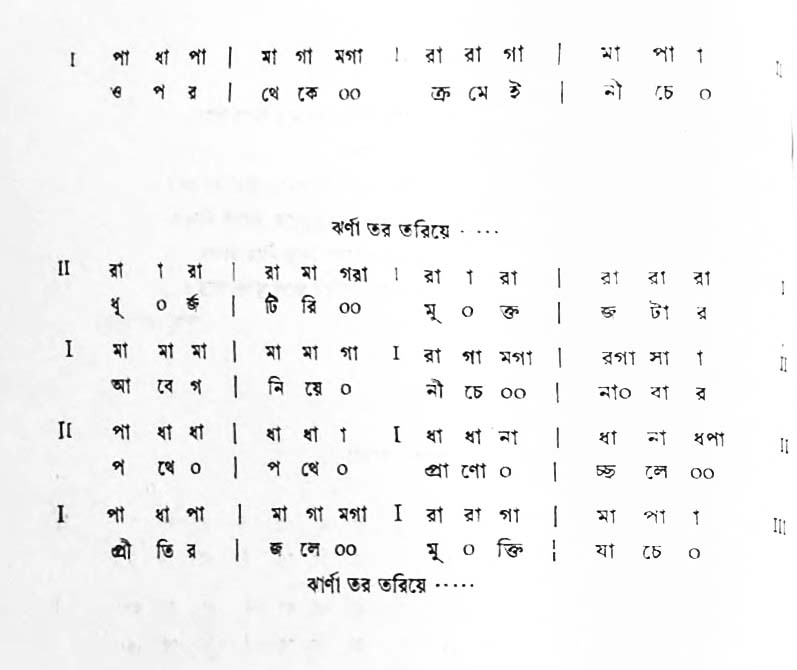 I পা ধা পা | মা গা মগা ! রা রা গা | মা পা া II
ও প র | থে কে ০০ ক্র মে ই | নী চে ০
ঝর্ণা তর তরিয়ে · ····
II রা া রা | রা মা গরা ! রা া রা | রা রা রা I
ধূ ০ র্জ | টি রি ০০ মূ ০ ক্ত | জ টা র
I মা মা মা | মা মা গা I রা গা মগা | রগা সা া II
আ বে গ | নি য়ে ০ নী চে ০০ | না০ বা র
II পা ধা ধা | ধা ধা া I ধা ধা না | ধা না ধপা II
প থে ০ | প থে ০ প্রা ণো ০ | চ্ছ লে ০০
I পা ধা পা | মা গা মগা I রা রা গা | মা পা া III
প্রী তি র | জ লে ০০ মূ ০ ক্তি ¦ যা চে ০
ঝার্ণা তর তরিয়ে ·····